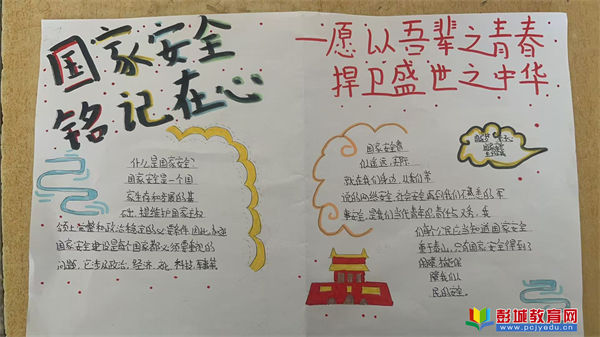 国家安全
铭记在心
一愿以吾辈之青春
捍卫盛世之中华
什么是国家安全?
国家安全是一个国
家生存和发展的基
石,是维护国家主权
领土完整和政治稳定的必要条件,因此,
国家安全建设是每个国家都必须重视的
问题,它涉及政治、经济、文化、科技、军事等
国家安全看
似遥远,实际
就在我们身边,从我们常
说的网络安全,社会安全再到我们不熟悉的军
事安全,是我们当代青年的责任与义务,我
们每个公民应当知道国家安全
重于泰山,只有国家安全得到了
保障,才能保
障我们人
民的安全。
彭城教育网
www.pcjyedu.cn